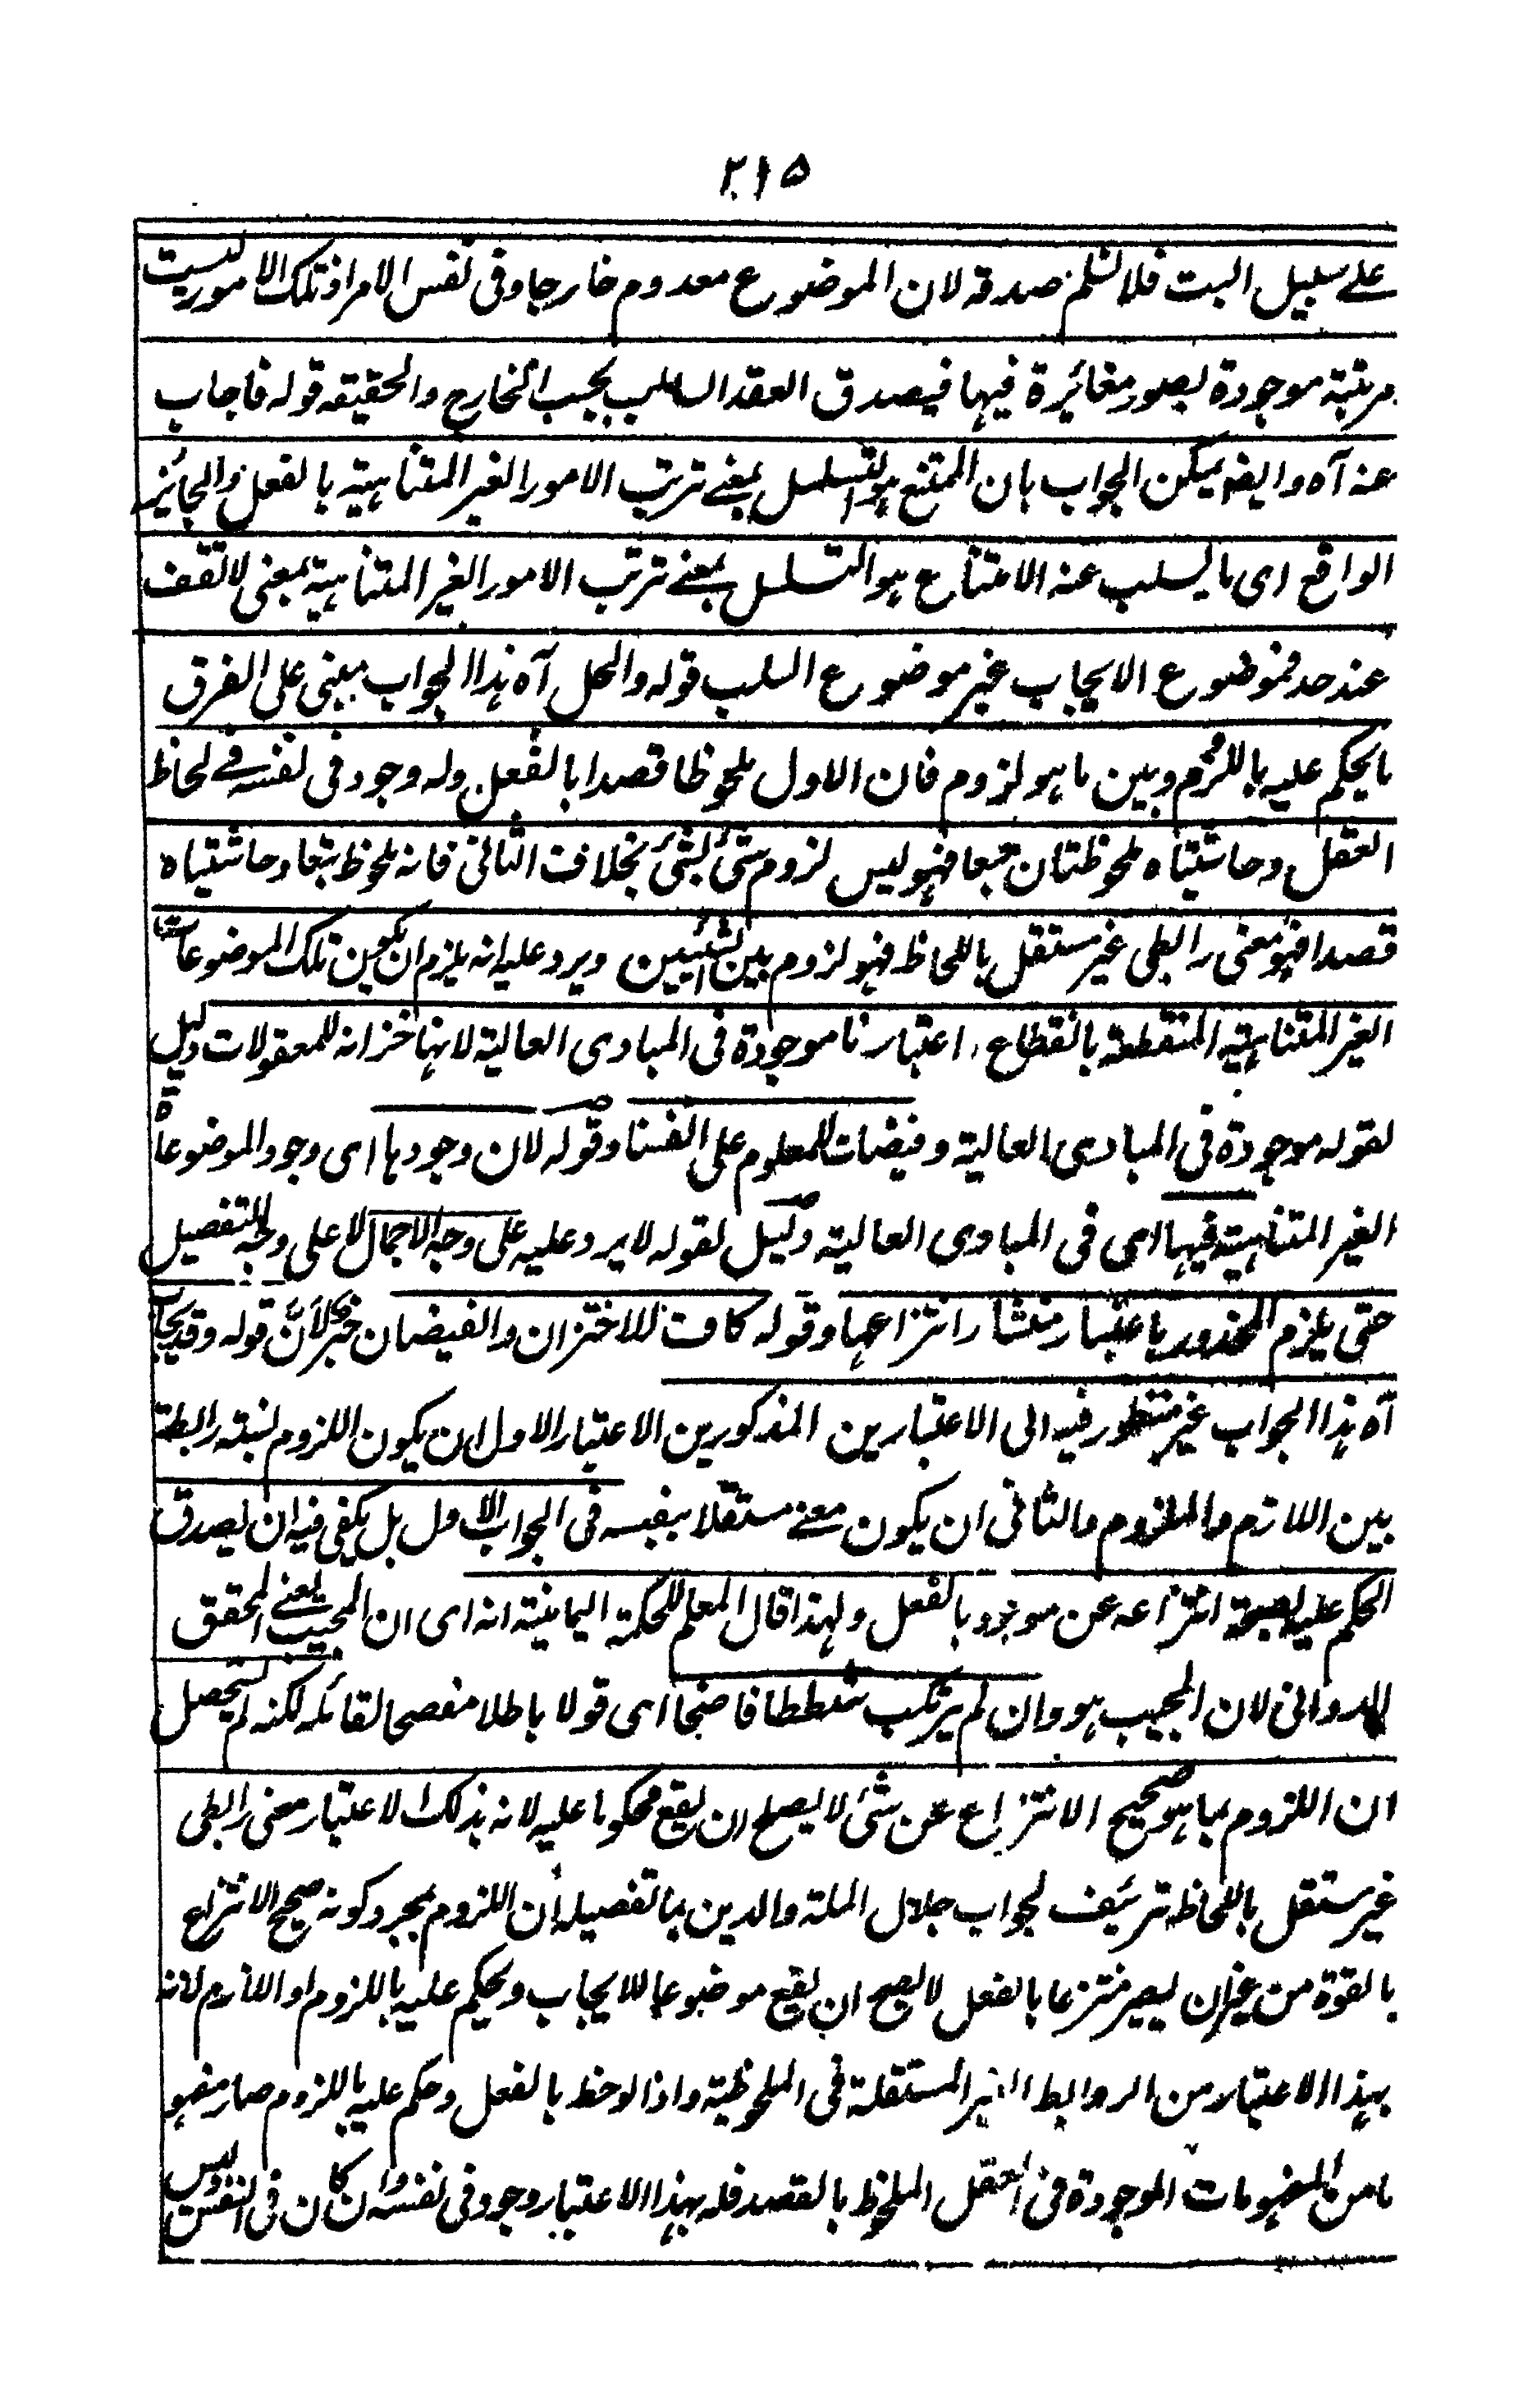 ٢١٥
على سبيل البت فلا نسلم صدقه لان الموضوع معدوم خارجا وفى نفس الامر اذ تلك الامور ليست
مرتبة موجودة بصور مغائرة فيها فيصدق العقد السالب بحسب الخارج والحقيقه قوله فاجاب
عنه آه وايضا يمكن الجواب بان الممتنع هو التسلسل بمعنے ترتب الامور الغير المتناهية بالفعل والجائز
الواقع اى ما يسلب عنه الامتناع هو التسلسل بمعنے ترتب الامور الغير المتناهية بمعنى لا تقف
عند حد فموضوع الايجاب غير موضوع السلب قوله والحل آه هذا الجواب مبنى على الفرق
ما يحكم عليه باللزوم وبين ما هو لزوم فان الاول ملحوظا قصدا بالفعل وله وجود فى نفسه فے لحاظ
العقل وحاشيتاه ملحوظتان تبعا فهو ليس لزوم شئ لشئ بخلاف الثانى فانه ملحوظ تبعا وحاشيتاه
قصدا فهو معنى رابطى غير مستقل باللحاظ فهو لزوم بين الشيئين ويرد عليه انه يلزم ان يكون تلك الموضوعات
الغير المتناهية المنقطعة بانقطاع اعتبارنا موجودة فى المبادى العالية لانها خزانه للمعقولات دليل
لقوله موجودة فى المبادى العالية وفيضات للمعلوم على انفسنا وقوله لان وجودها اى وجود الموضوعاة
الغير المتناهية فيها اى فى المبادى العالية دليل لقوله لا يرد عليه على وجه الاجمال لا على وجه التفصيل
حتى يلزم المحذور باعتبار منشا انتزاعها وقوله كاف للاختزان والفيضان خبر لأنّ قوله وقد يجاب
آه هذا الجواب غير منظور فيه الى الاعتبارين المذكورين الاعتبار الاول ان يكون اللزوم نسبته رابطة
بين اللازم والملزوم والثانى ان يكون معنے مستقلا بنفسه فى الجواب الاول بل يكفى فيه ان يصدق
الحكم عليه لصحة انتزاعه عن موجود بالفعل ولهذا قال المعلم للحكمة اليمانية انه اى ان المجيب يعنے المحقق
الدوانى لان المجيب هو وان لم يرتكب شططا فاضحا اى قولا باطلا مفصحا لقائله لكنه لم يتحصل
ان اللزوم بما هو صحيح الانتزاع عن شئ لا يصلح ان يقع محكوما عليه لانه بذلك الاعتبار معنى رابطى
غير مستقل باللحاظ تزئيف لجواب جلال الملة والدين بما تفصيله أن اللزوم بمجرد كونه صحيح الانتزاع
بالقوة من غير ان يصير منتزعا بالفعل لا يصح ان يقع موضوعا للايجاب ويحكم عليه باللزوم او اللازم لانه
بهذا الاعتبار من الروابط الغير المستقلة فى الملحوظية واذا لوحظ بالفعل وحكم عليه باللزوم صار مفهو
ما من المفهومات الموجودة فى العقل الملحوظ بالقصد فله بهذا الاعتبار وجود فى نفسه وان كان فى النفس وليس